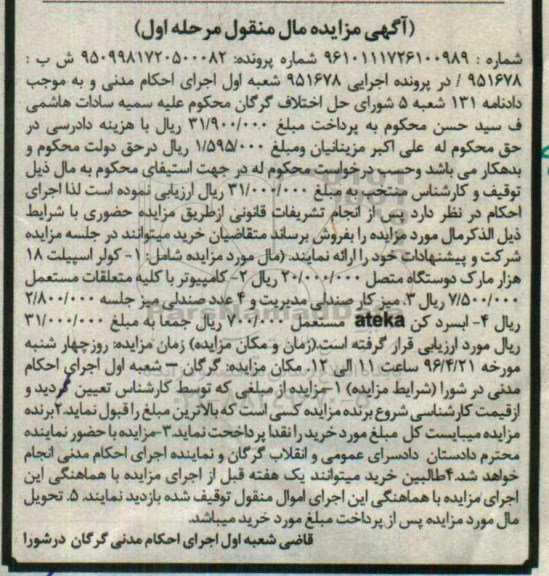 (آگهی مزایده مال منقول مرحله اول)
شماره : ۹۶۱۰۱۱۱۷۲۶۱۰۰۹۸۹ شماره پرونده: ۹۵۰۹۹۸۱۷۲۰۵۰۰۰۸۲ ش ب :
۹۵۱۶۷۸ / در پرونده اجرایی ۹۵۱۶۷۸ شعبه اول اجرای احکام مدنی و به موجب
دادنامه ۱۳۱ شعبه ۵ شورای حل اختلاف گرگان محکوم علیه سمیه سادات هاشمی
ف سید حسن محکوم به پرداخت مبلغ ۳۱/۹۰۰/۰۰۰ ریال با هزینه دادرسی در
حق محکوم له علی اکبر مزینانیان ومبلغ ۱/۵۹۵/۰۰۰ ریال درحق دولت محکوم و
بدهکار می باشد وحسب درخواست محکوم له در جهت استیفای محکوم به مال ذیل
توقیف و کارشناس منتخب به مبلغ ۳۱/۰۰۰/۰۰۰ ریال ارزیابی نموده است لذا اجرای
احکام در نظر دارد پس از انجام تشریفات قانونی ازطریق مزایده حضوری با شرایط
ذیل الذکرمال مورد مزایده را بفروش برساند متقاضیان خرید میتوانند در جلسه مزایده
شرکت و پیشنهادات خود را ارائه نمایند. (مال مورد مزایده شامل: ۱- کولر اسپیلت ۱۸
هزار مارک دوستگاه متصل ۲۰/۰۰۰/۰۰۰ ریال ۲- کامپیوتر با کلیه متعلقات مستعمل
۷/۵۰۰/۰۰۰ ریال ۳. میز کار صندلی مدیریت و ۴ عدد صندلی میز جلسه ۲/۸۰۰/۰۰۰
ریال ۴- ابسرد کن ateka مستعمل ۷۰۰/۰۰۰ ریال جمعا به مبلغ ۳۱/۰۰۰/۰۰۰
ریال مورد ارزیابی قرار گرفته است.(زمان و مکان مزایده) زمان مزایده: روزچهار شنبه
مورخه ۹۶/۴/۲۱ ساعت ۱۱ الی ۱۲. مکان مزایده: گرگان – شعبه اول اجرای احکام
مدنی در شورا (شرایط مزایده) ۱-مزایده از مبلغی که توسط کارشناس تعیین گردید و
ازقیمت کارشناسی شروع برنده مزایده کسی است که بالاترین مبلغ را قبول نماید.۲برنده
مزایده میبایست کل مبلغ مورد خرید را نقدا پرداخت نماید.۳-مزایده با حضور نماینده
محترم دادستان دادسرای عمومی و انقلاب گرگان و نماینده اجرای احکام مدنی انجام
خواهد شد.۴طالبین خرید میتوانند یک هفته قبل از اجرای مزایده با هماهنگی این
اجرای مزایده با هماهنگی این اجرای اموال منقول توقیف شده بازدید نمایند. ۵. تحویل
مال مورد مزایده پس از پرداخت مبلغ مورد خرید میباشد.
قاضی شعبه اول اجرای احکام مدنی گرگان درشورا